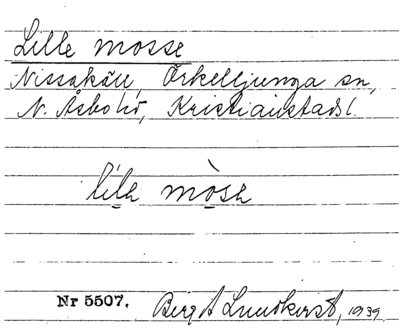 Lille mosse
Nissakäll, Örkelljunga sn,
N. Åsbo hd, Kristianstads l.
lílɐ mòsɐ
Nr 5507. Bengt Lundkvist, 1939